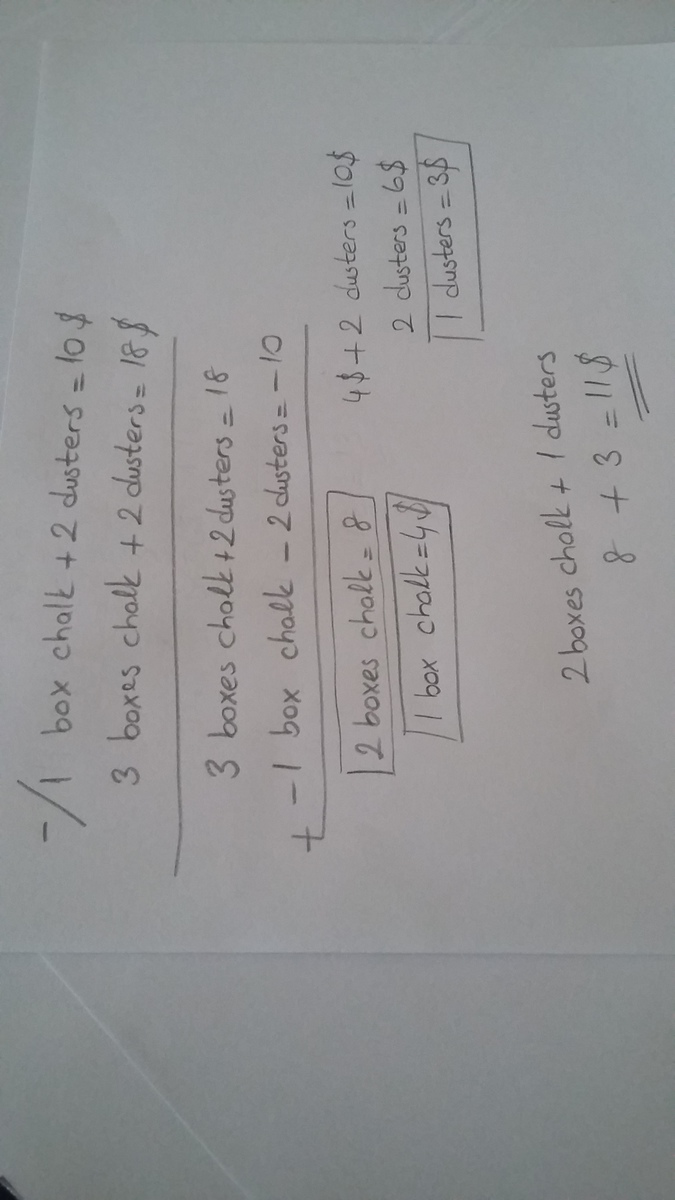 -/1 box chalk + 2 dusters = 10$
3 boxes chalk + 2 dusters = 18$
3 boxes chalk + 2 dusters = 18
+ -1 box chalk - 2 dusters = -10
2 boxes chalk = 8
1 box chalk = 4$
4$ + 2 dusters = 10$
2 dusters = 6$
1 dusters = 3$
2 boxes chalk + 1 dusters
8 + 3 = 11$